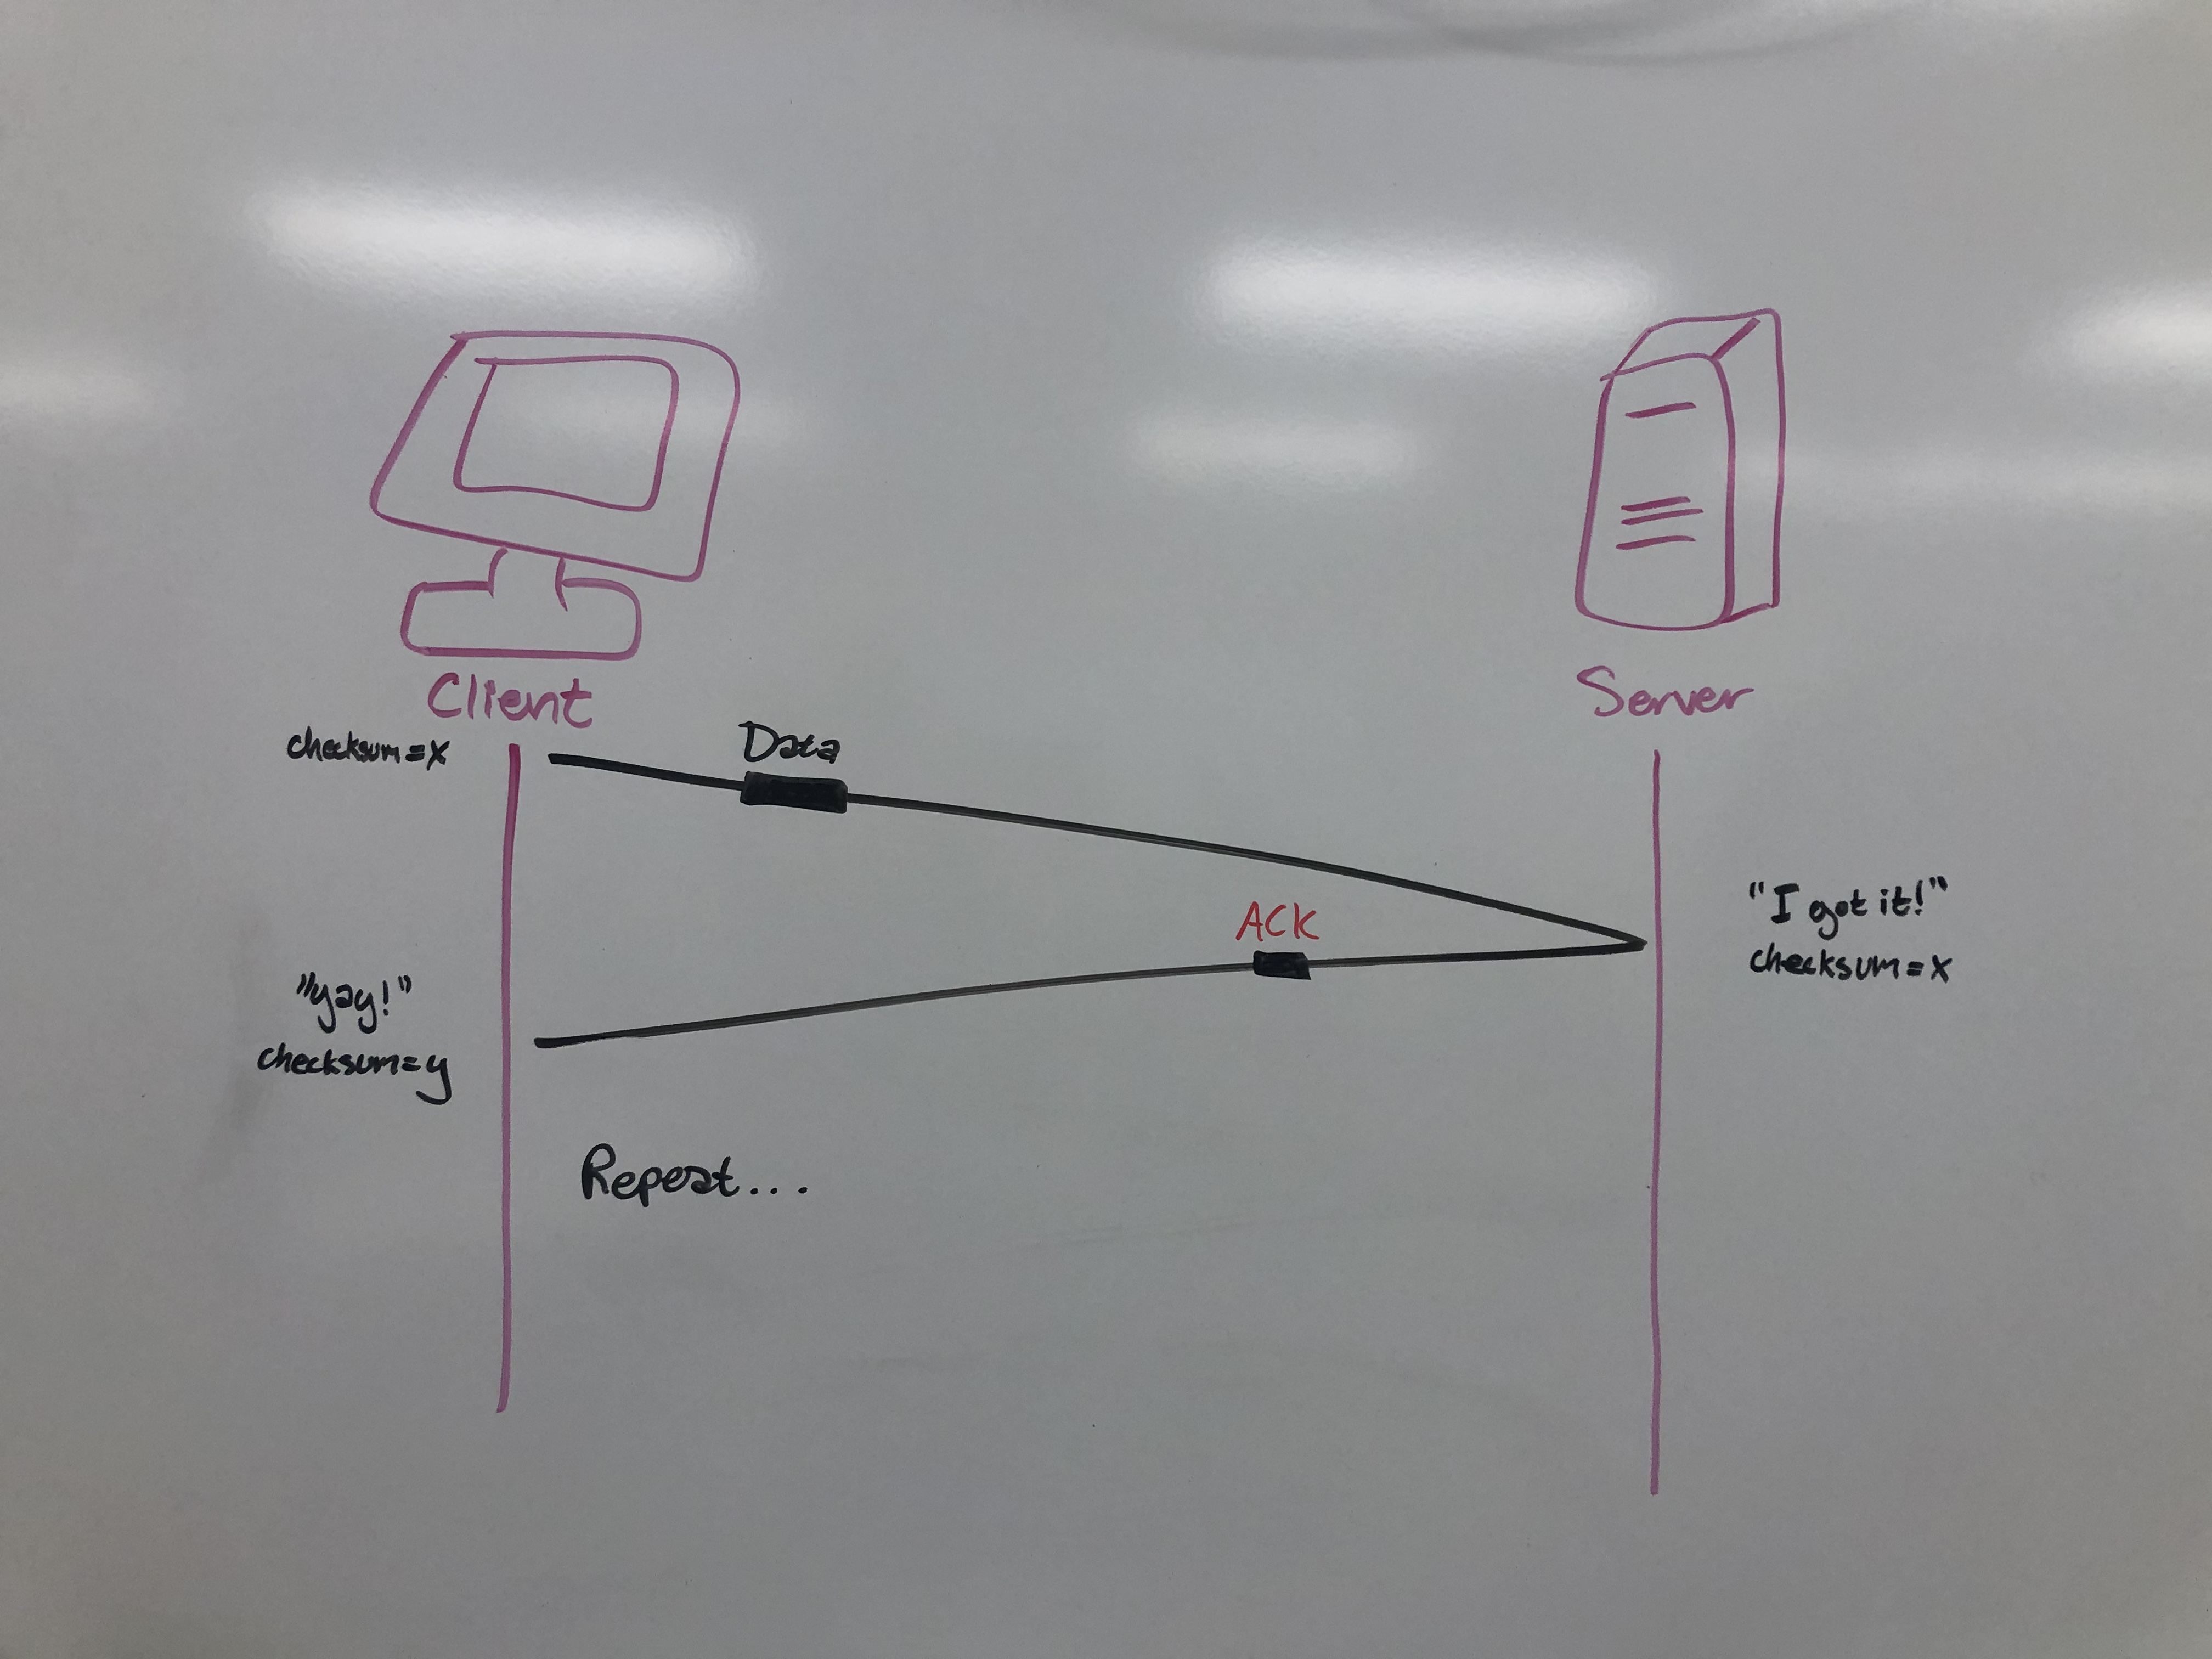 Client
Server
checksum=x
Data
"I got it!"
checksum=x
ACK
"yay!"
checksum=y
Repeat...